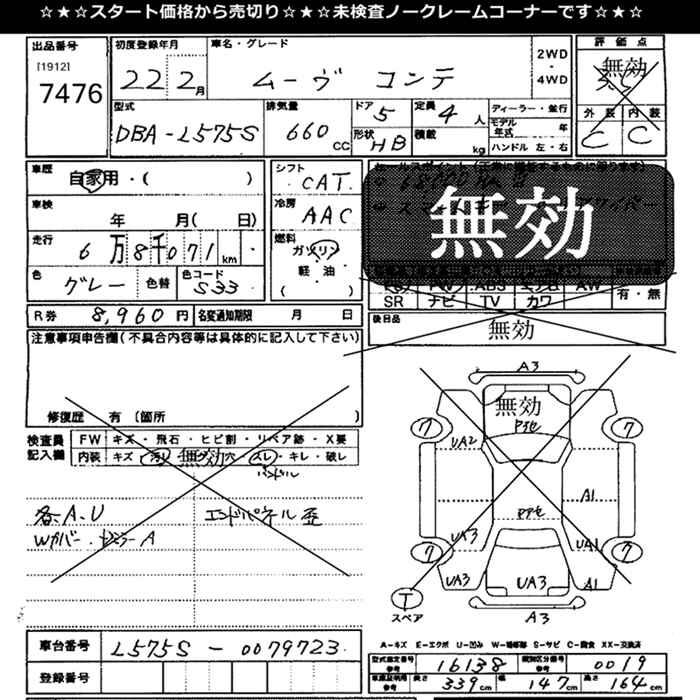 ☆★☆スタート価格から売切り☆★☆未検査ノークレームコーナーです☆★☆
出品番号
[1912]
7476
初度登録年月
22 2月
車名・グレード
ムーヴ コンテ
2WD
・
4WD
評価点
無効
3.5
外装 内装
C C
型式
DBA-L575S
排気量
660 CC
ドア 5
形状 HB
定員 4 人
積載 kg
ディーラー・並行
モデル年式 年
ハンドル 左・右
車歴
自家用・( )
車検
年 月( 日)
走行
6万8千071 km
色 グレー 色替
色コード S33
シフト
CAT
冷房
AAC
燃料
ガソリン
軽油
( )
無効
SR ナビ TV カワ
有・無
R券 8,960円
名変通知期限 月 日
後日品
無効
注意事項申告欄(不具合内容等は具体的に記入して下さい)
修復歴 有(箇所 )
検査員記入欄
FW キズ・飛石・ヒビ割・リペア跡・X要
内装 キズ・汚れ・無効・穴・スレ・キレ・破レ
ハンドル
各A・U
Wカバー・ドアミラーA
エンドパネル歪
A3
無効
PアセUA2
A1
Pアセ
UA3
UA1
UA3
UA3
A1
A3
7
7
7
7
T
スペア
A-キズ E-エクボ U-凹み W-補修跡 S-サビ C-腐食 XX-交換済
車台番号 L575S-0079723
登録番号
型式指定番号 参考 16138
類別区分番号 参考 0019
車庫証明用 参考 長さ 339cm 幅 147cm 高さ 164cm